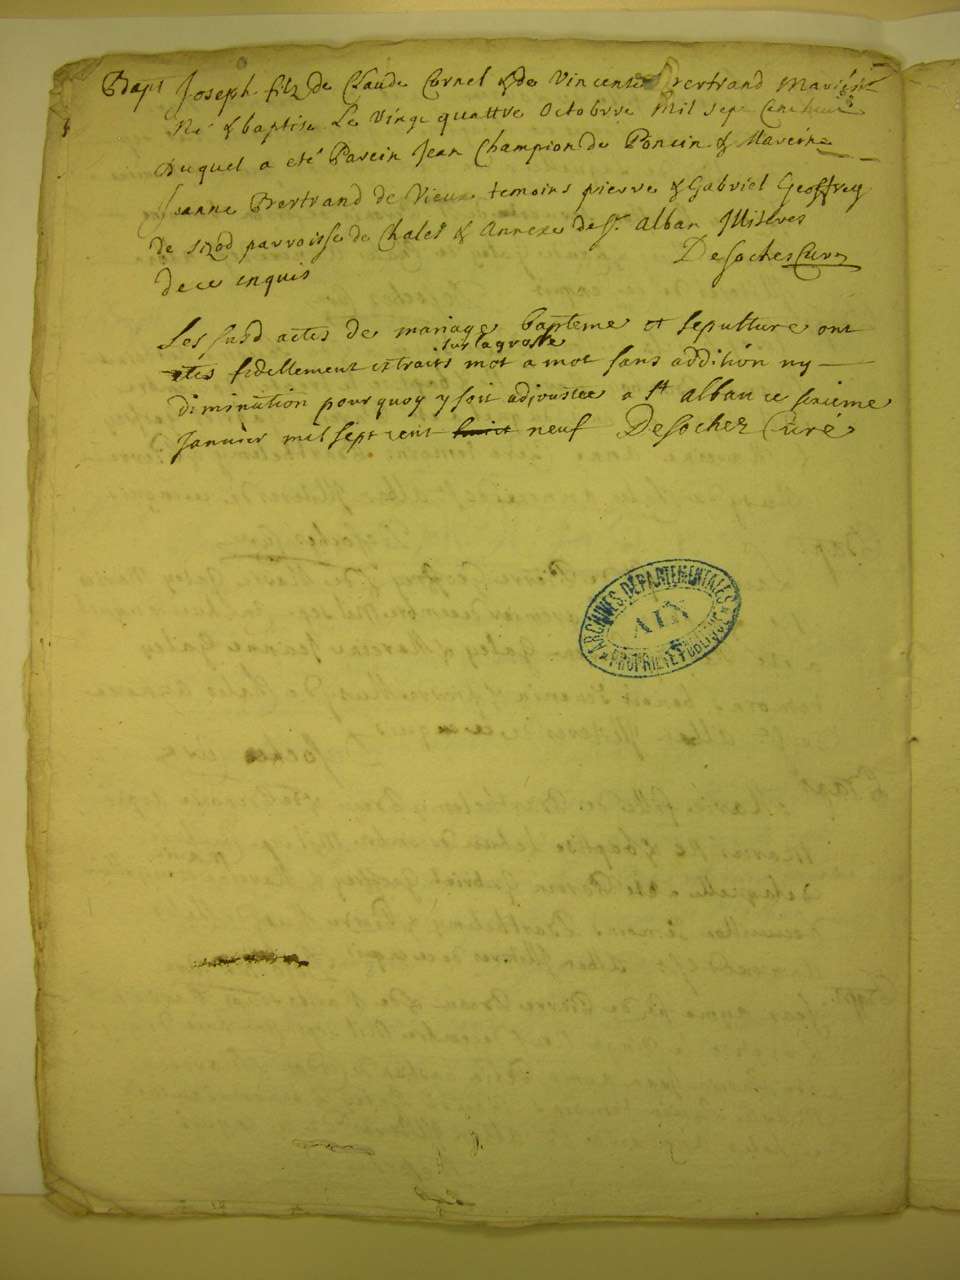 Bapt Joseph filz de Claude Cornet & de Vincente Bertrand Mariés
Né & baptisé Le Vingt quattre Octobvre Mil sept Cent huict
Duquel a eté Parein Jean Champion de Poncin & Mareine
Jeanne Bertrand de Vieux temoins pierre & Gabriel Geoffrey
de sizod parroisse de Chaley & Annexe de St. Alban Illiteres
de ce enquis
DeSoches Cure
Les susd actes de mariage bapteme et sepulture ont
sur la grosse
étés fidellement extraits mot a mot sans addition ny
diminution pourquoy y soit adjoustée a St alban ce sixieme
Janvier mil sept cent huict neuf DeSoches Curé
ARCHIVES DÉPARTEMENTALES
AIN
PROPRIÉTÉ PUBLIQUE